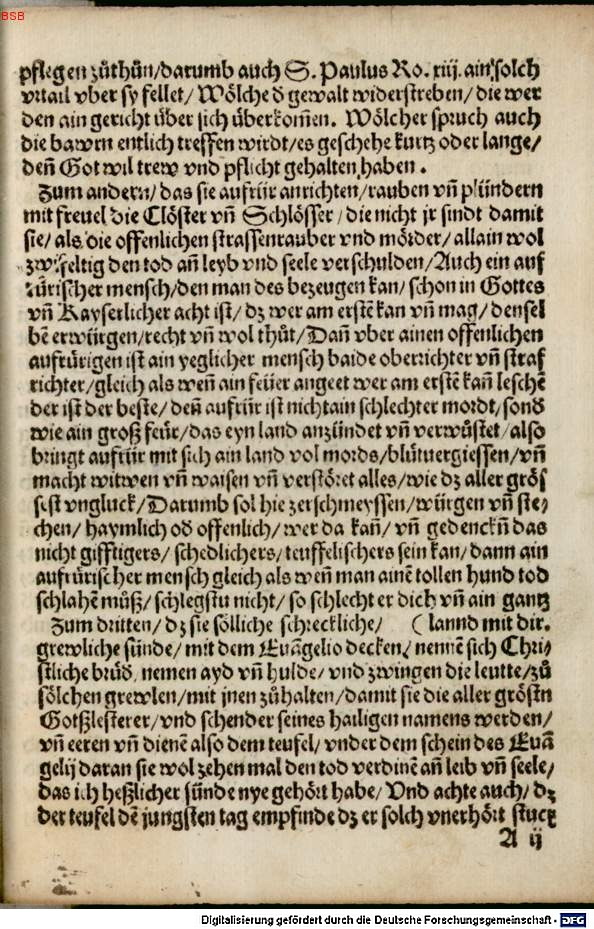 BSB
pflegen zůthůn/darumb auch S. Paulus Ro. xiij. ain solch
vrtail vber sy fellet/ Wölche d̄ gewalt widerstreben/ die wer
den ain gericht über sich überkom̄en. Wölcher spruch auch
die bawrn entlich treffen wirdt/es geschehe kurtz oder lange/
deñ Got wil trew vnd pflicht gehalten haben.
Zum andern/ das sie aufrür anrichten/rauben vñ plündern
mit freuel die Clöster vñ Schlösser/die nicht jr sindt damit
sie/als die offenlichen strassenrauber vnd mörder/allain wol
zwifeltig den tod añ leyb vnd seele verschulden/Auch ein auf
rürischer mensch/den man des bezeugen kan/schon in Gottes
vñ Kayserlicher acht ist/ dz wer am erstē kan vñ mag/densel
bē erwürgen/recht vñ wol thůt/Dañ vber ainen offenlichen
aufrürigen ist ain yeglicher mensch baide oberrichter vñ straf
richter/gleich als weñ ain feüer angeet wer am erstē kañ leschē
der ist der beste/deñ aufrür ist nicht ain schlechter mordt/sond̄
wie ain groß feür/das eyn land anzündet vñ verwůstet/also
bringt aufrür mit sich ain land vol mords/blůtuergiessen/vñ
macht witwen vñ waisen vñ verstöret alles/wie dz aller grös
sest vngluck/Darumb sol hie zerschmeyssen/würgen vñ ste/
chen/haymlich od̄ offenlich/wer da kañ/vñ gedenckñ das
nicht gifftigers/schedlichers/teuffelischers sein kan/dann ain
aufrürischer mensch gleich als weñ man ainē tollen hund tod
schlahē můß/schlegstu nicht/so schlecht er dich vñ ain gantz
Zum dritten/dz sie sölliche schreckliche/ (lannd mit dir.
grewliche sünde/mit dem Euāgelio decken/nennē sich Chri/
stliche brüd̄, nemen ayd vñ hulde/vnd zwingen die leutte/zů
sölchen grewlen/mit jnen zůhalten/damit sie die aller gröstñ
Gotßlesterer/vnd schender seines hailigen namens werden/
vñ eeren vñ dienē also dem teufel/vnder dem schein des Euā
gelij daran sie wol zehen mal den tod verdinē añ leib vñ seele/
das ich heßlicher sünde nye gehört habe/Vnd achte auch/dz
der teufel dē jungsten tag empfinde dz er solch vnerhört stuck
A ij
Digitalisierung gefördert durch die Deutsche Forschungsgemeinschaft - DFG